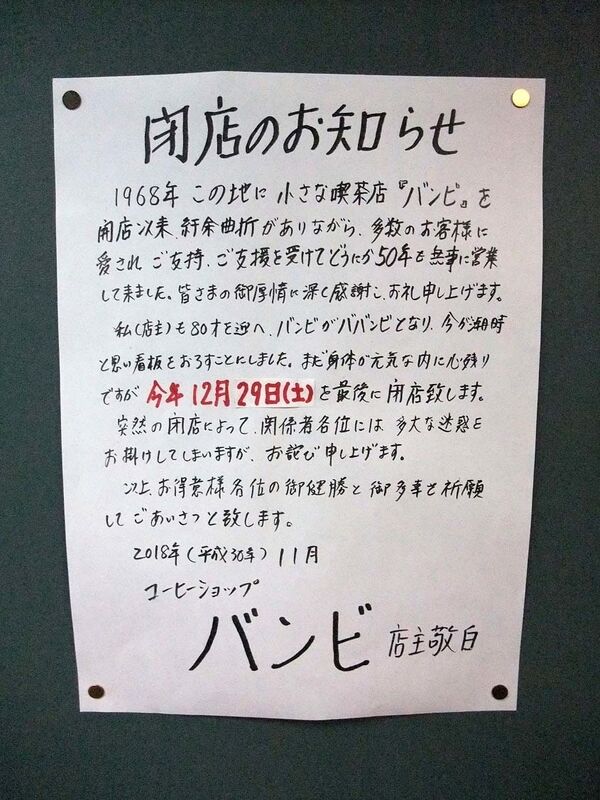 閉店のお知らせ
1968年 この地に 小さな喫茶店『バンビ』を
開店以来、紆余曲折がありながら、多数のお客様に
愛され ご支持、ご支援を受けてどうにか50年も無事に営業
して来ました。皆さまの御厚情に深く感謝し、お礼申し上げます。
私(店主)も80才を迎へ、バンビがババンビとなり、今が潮時
と思い看板をおろすことにしました。まだ身体が元気な内に心残り
ですが 今年12月29日(土)を最後に閉店致します。
突然の閉店によって、関係者各位には 多大な迷惑を
お掛けしてしまいますが、お詫び申し上げます。
以上、お得意様各位の御健勝と御多幸を祈願
してごあいさつと致します。
2018年(平成30年) 11月
コーヒーショップ
バンビ 店主敬白